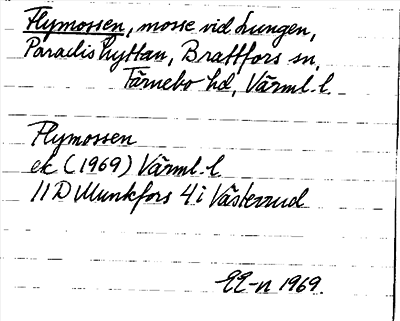 Flymossen, mosse vid Lungen,
Paradishyttan, Brattfors sn,
Färnebo hd, Värml. l.
Flymossen
ek (1969) Värml. l
11 D Munkfors 4 i Västerrud
EE-n 1969.